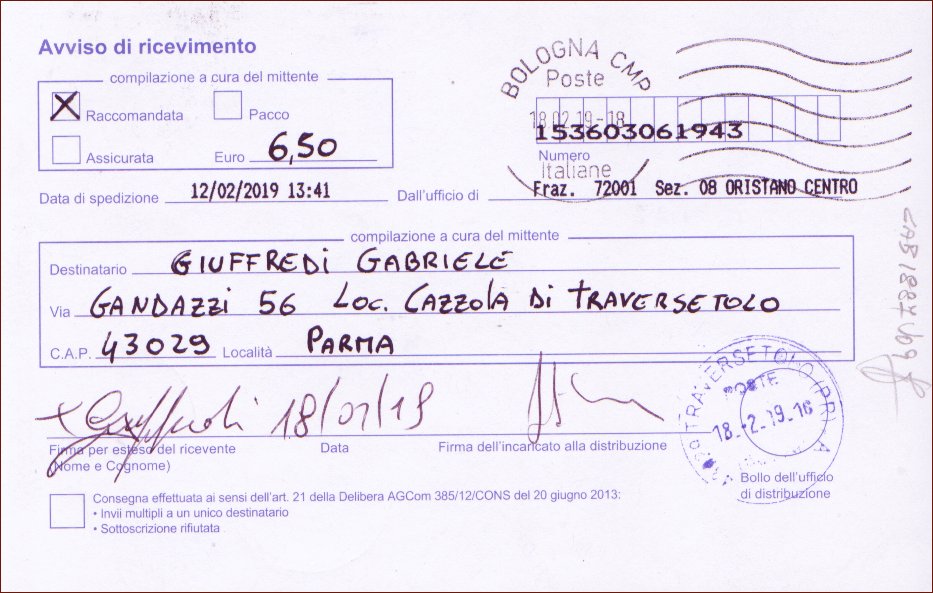 Avviso di ricevimento
compilazione a cura del mittente
X Raccomandata Pacco
Assicurata Euro 6,50
BOLOGNA CMP
Poste
18.02.19-18
153603061943
Numero
Italiane
Data di spedizione 12/02/2019 13:41 Dall'ufficio di Fraz. 72001 Sez. 08 ORISTANO CENTRO
compilazione a cura del mittente
Destinatario GIUFFREDI GABRIELE
Via GANDAZZI 56 LOC. CAZZOLA DI TRAVERSETOLO
C.A.P. 43029 Località PARMA
Giuffredi 18/02/19
Firma per esteso del ricevente
(Nome e Cognome)
Data
Firma dell'incaricato alla distribuzione
TRAVERSETOLO (PR) A
POSTE
18-2-19-16
Bollo dell'ufficio
di distribuzione
Consegna effettuata ai sensi dell'art. 21 della Delibera AGCom 385/12/CONS del 20 giugno 2013:
• Invii multipli a un unico destinatario
• Sottoscrizione rifiutata